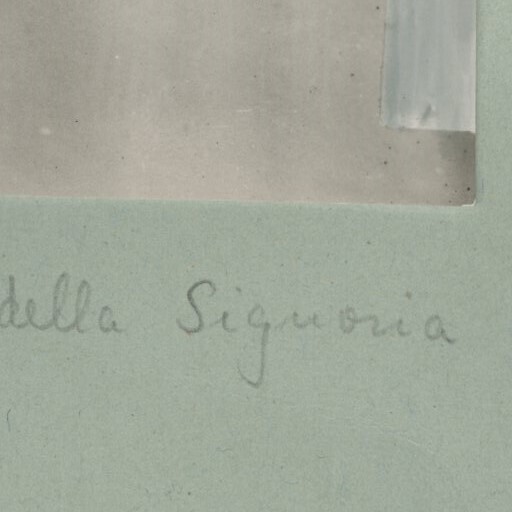 della Signoria